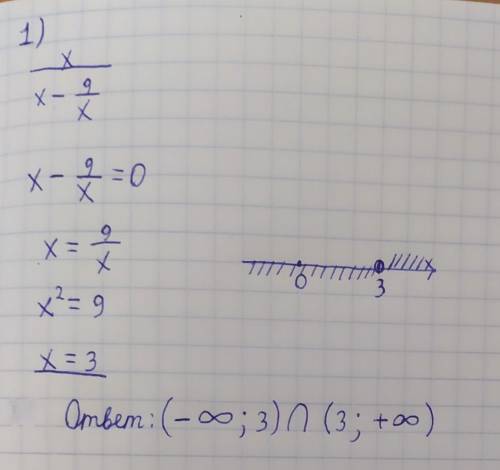 1)
x
x - 9/x
x - 9/x = 0
x = 9/x
x² = 9
x = 3
0 3
Ответ: (-∞; 3) ∩ (3; +∞)